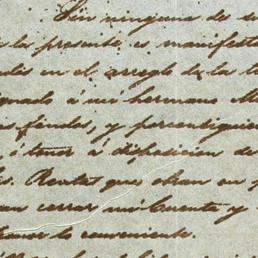 Sin ninguna de su
la presente, es manifesta
en el arreglo de la t
á mi hermano M
fondos, y por consiguien
ó tener á disposicion de
Rentas que obran en p
an cerrar mi Cuenta y
lo conveniente.